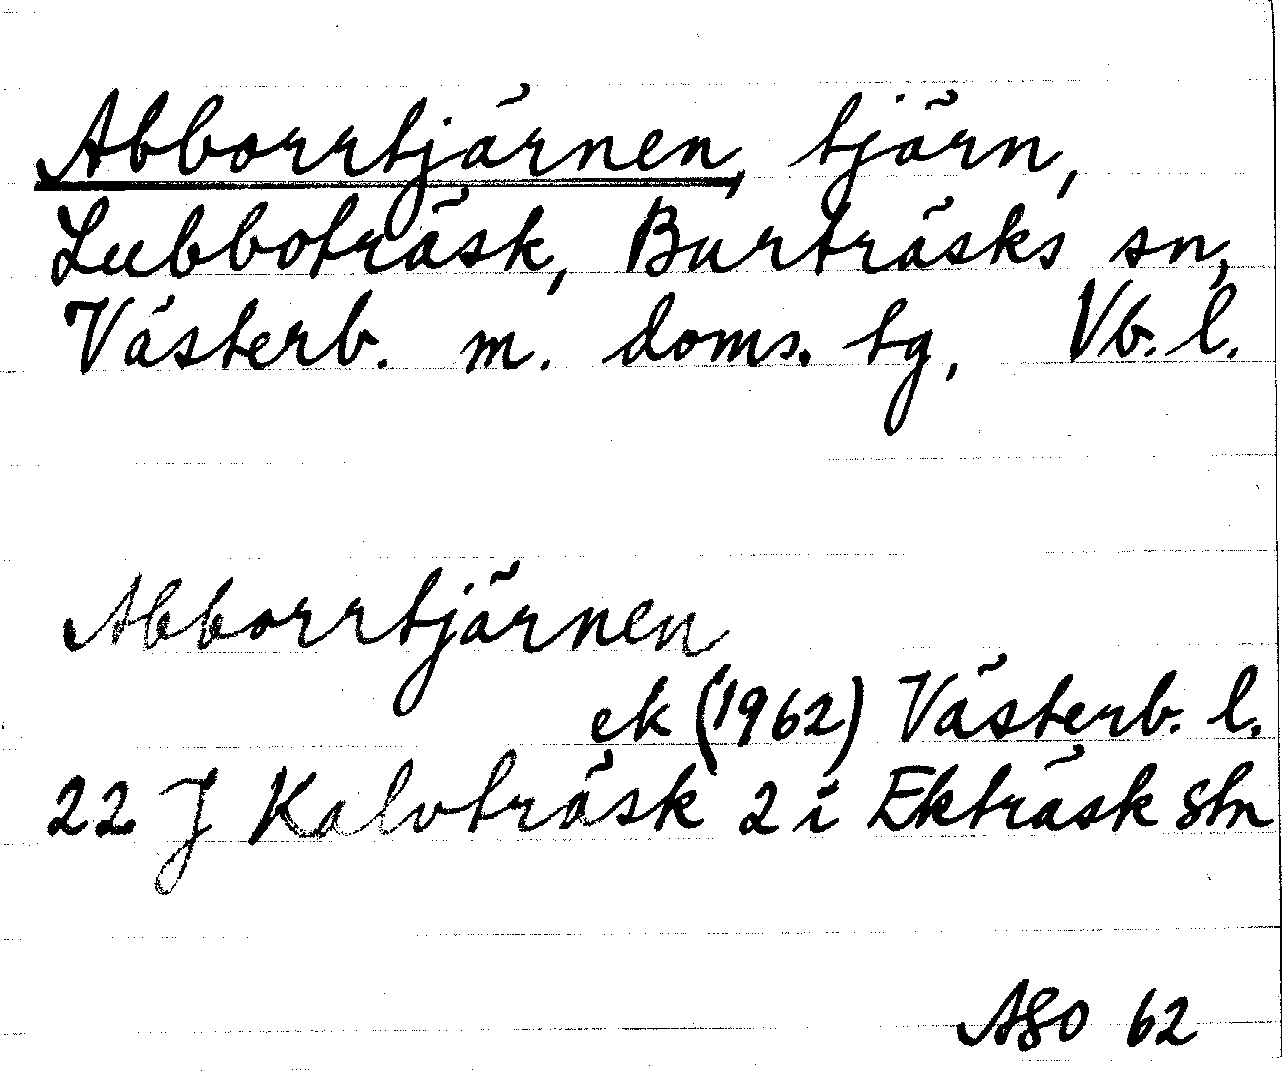 Abborrtjärnen, tjärn,
Lubboträsk, Burträsks sn,
Västerb. m. doms. tg, Vb. l.
Abborrtjärnen
ek (1962) Västerb. l.
22 J Kalvträsk 2 i Ekträsk stn
ASO 62